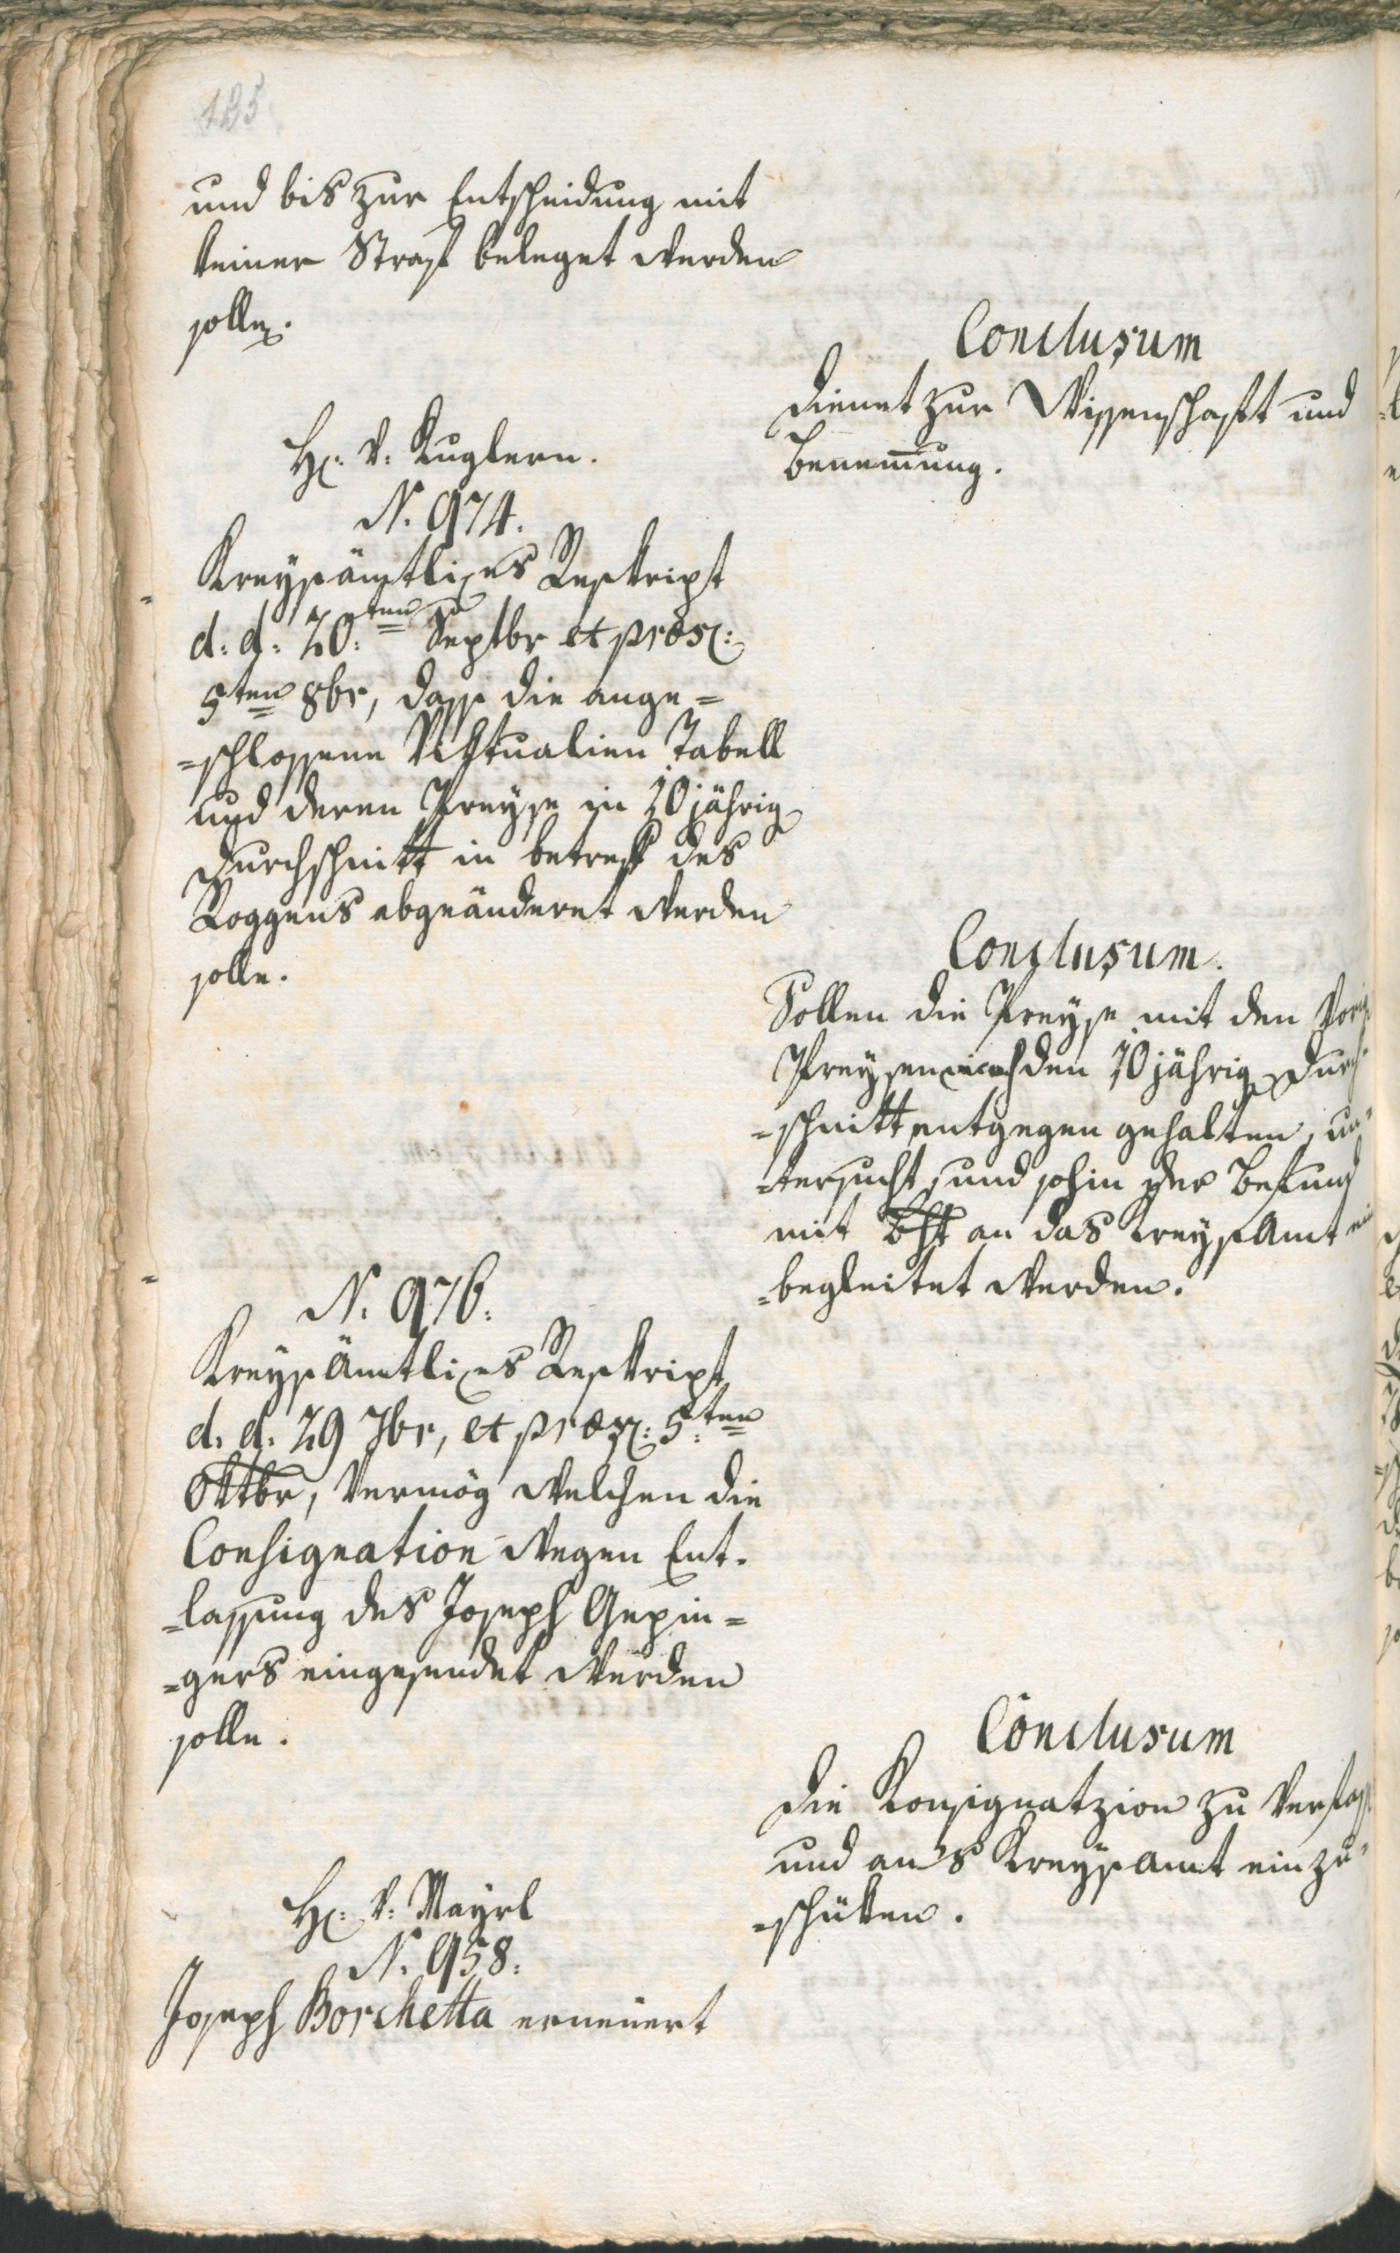 125
und bis zur Entscheidung mit
keiner Straf beleget werden
solle.
Conclusum
dienet zur Wissenschafft und
Benemung.
H: v: Kuglern.
N. 974.
Kreysämtliches Reskript
d: d: 20:ten Septbr et præs:
5ten 8br, dass die ange=
=schlossene Viktualien Tabell
und deren Preyse in 10jährig
durchschnitt in betreff des
Roggens abgeänderet werden
solle.
Conclusum.
Sollen die Preyse mit den vorig
Preysen nach den 10jährig durch=
=schnitt entgegen gehalten, un=
=tersucht, und sohin der Befund
mit Bht an das Kreysamt ein
=begleitet werden.
N. 976:
Kreysämtliches Reskript
d. d. 29 7br, et præs: 5:ten
Oktbr, vermög welchen die
Consignation wegen Ent=
=lassung des Joseph Gepin=
=gers eingesendet werden
solle.
Conclusum
die Konsignatzion zu verfass
und an's Kreysamt einzu=
=schüken.
H: v: Mayrl
N. 958:
Joseph Borchetta erneuert